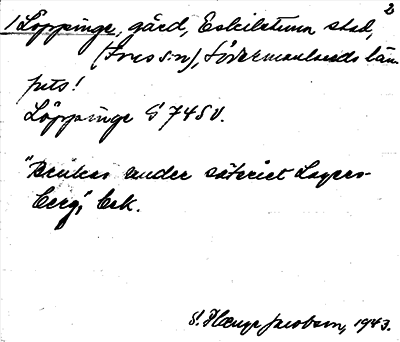 2
1 Löppinge, gård, Eskilstuna stad,
(Fors s:n), Södermanlands län
pets!
Löppinge G 74 SV.
"Brukas under säteriet Lagers-
berg", bek.
S. Jacobson, 1943.